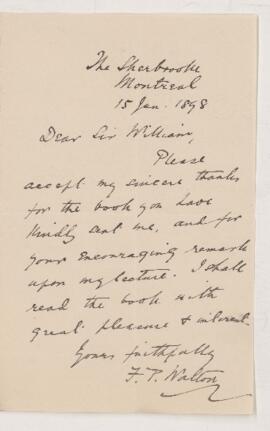 The Sherbrooke
Montreal
15 Jan. 1898
Dear Sir William,
Please
accept my sincere thanks
for the book you have
kindly sent me, and for
your encouraging remark
upon my lecture. I shall
read the book with
great pleasure & interest.
Yours faithfully
F. P. Walton